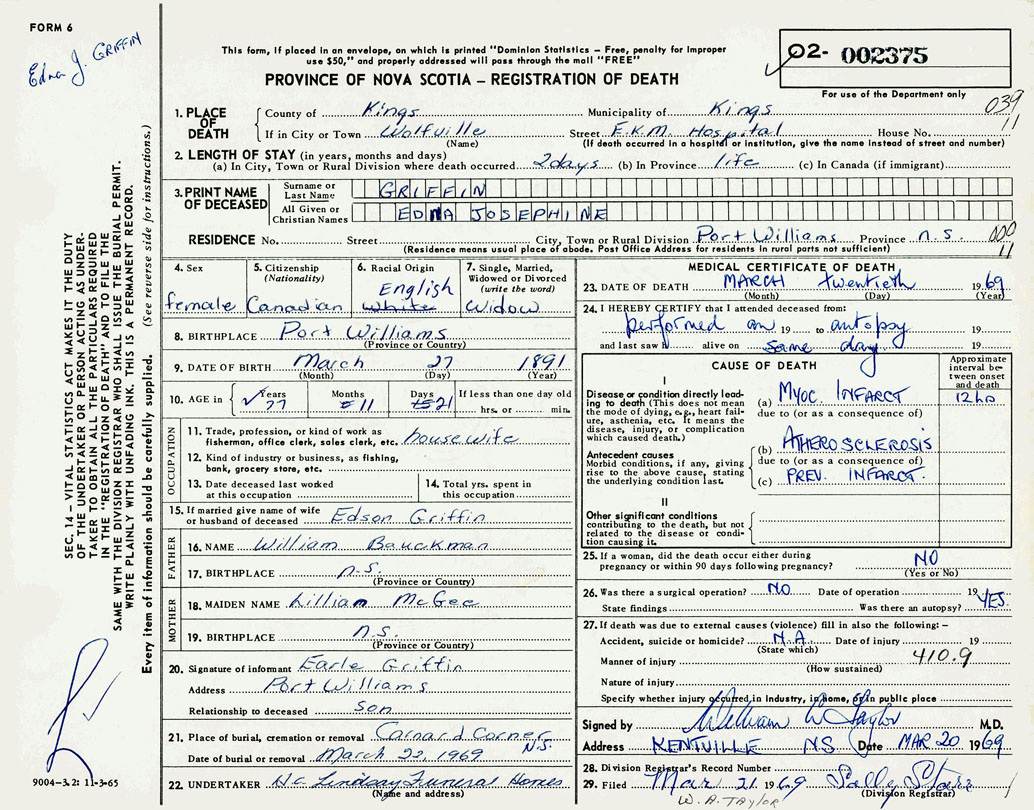 FORM 6
Edna J. GRIFFIN
This form, if placed in an envelope, on which is printed "Dominion Statistics – Free, penalty for improper
use $50," and properly addressed will pass through the mail "FREE"
PROVINCE OF NOVA SCOTIA – REGISTRATION OF DEATH
02- 002375
For use of the Department only
039
11
SEC. 14 – VITAL STATISTICS ACT MAKES IT THE DUTY
OF THE UNDERTAKER OR PERSON ACTING AS UNDER-
TAKER TO OBTAIN ALL THE PARTICULARS REQUIRED
IN THE "REGISTRATION OF DEATH" AND TO FILE THE
SAME WITH THE DIVISION REGISTRAR WHO SHALL ISSUE THE BURIAL PERMIT.
WRITE PLAINLY WITH UNFADING INK. THIS IS A PERMANENT RECORD.
Every item of information should be carefully supplied. (See reverse side for instructions.)
1. PLACE OF DEATH County of Kings Municipality of Kings
If in City or Town Wolfville Street E.K.M. Hospital House No.
(Name) (If death occurred in a hospital or institution, give the name instead of street and number)
2. LENGTH OF STAY (in years, months and days)
(a) In City, Town or Rural Division where death occurred 2 days (b) In Province life (c) In Canada (if immigrant)
3. PRINT NAME OF DECEASED Surname or Last Name GRIFFIN
All Given or Christian Names EDNA JOSEPHINE
RESIDENCE No. Street City, Town or Rural Division Port Williams Province n.s. 000
11
(Residence means usual place of abode. Post Office Address for residents in rural parts not sufficient)
4. Sex female
5. Citizenship (Nationality) Canadian
6. Racial Origin English white
7. Single, Married, Widowed or Divorced (write the word) Widow
8. BIRTHPLACE Port Williams
(Province or Country)
9. DATE OF BIRTH March 27 1891
(Month) (Day) (Year)
10. AGE in Years 77 Months 11 Days 21 If less than one day old hrs. or min.
OCCUPATION
11. Trade, profession or kind of work as
fisherman, office clerk, sales clerk, etc. housewife
12. Kind of industry or business, as fishing,
bank, grocery store, etc.
13. Date deceased last worked
at this occupation
14. Total yrs. spent in
this occupation
15. If married give name of wife
or husband of deceased Edson Griffin
FATHER
16. NAME William Bauckman
17. BIRTHPLACE n.s.
(Province or Country)
MOTHER
18. MAIDEN NAME Lillian McGee
19. BIRTHPLACE n.s.
(Province or Country)
20. Signature of informant Earle Griffin
Address Port Williams
Relationship to deceased son
21. Place of burial, cremation or removal Canard Corner N.S.
Date of burial or removal March 22, 1969
22. UNDERTAKER H.C. Lindsay Funeral Homes
(Name and address)
9004-3.2: 11-3-65
MEDICAL CERTIFICATE OF DEATH
23. DATE OF DEATH MARCH twentieth 1969
(Month) (Day) (Year)
24. I HEREBY CERTIFY that I attended deceased from:
performed an 19 to autopsy 19
and last saw h alive on same day 19
CAUSE OF DEATH
Approximate interval between onset and death
I
Disease or condition directly leading to death (This does not mean the mode of dying, e.g., heart failure, asthenia, etc. It means the disease, injury, or complication which caused death.)
(a) MYOC INFARCT 12 hrs
due to (or as a consequence of)
Antecedent causes
Morbid conditions, if any, giving rise to the above cause, stating the underlying condition last.
(b) ATHEROSCLEROSIS
due to (or as a consequence of)
(c) PREV. INFARCT.
II
Other significant conditions
contributing to the death, but not related to the disease or condition causing it.
25. If a woman, did the death occur either during
pregnancy or within 90 days following pregnancy? NO
(Yes or No)
26. Was there a surgical operation? NO Date of operation 19
State findings Was there an autopsy? YES.
27. If death was due to external causes (violence) fill in also the following: –
Accident, suicide or homicide? N.A Date of injury 19
(State which)
Manner of injury 410.9
(How sustained)
Nature of injury
Specify whether injury occurred in industry, in home, or in public place
Signed by William A Taylor M.D.
Address KENTVILLE N.S. Date MAR 20 1969
28. Division Registrar's Record Number
29. Filed Mar 21 1969 Sally Starr
(Division Registrar)
W. A. TAYLOR